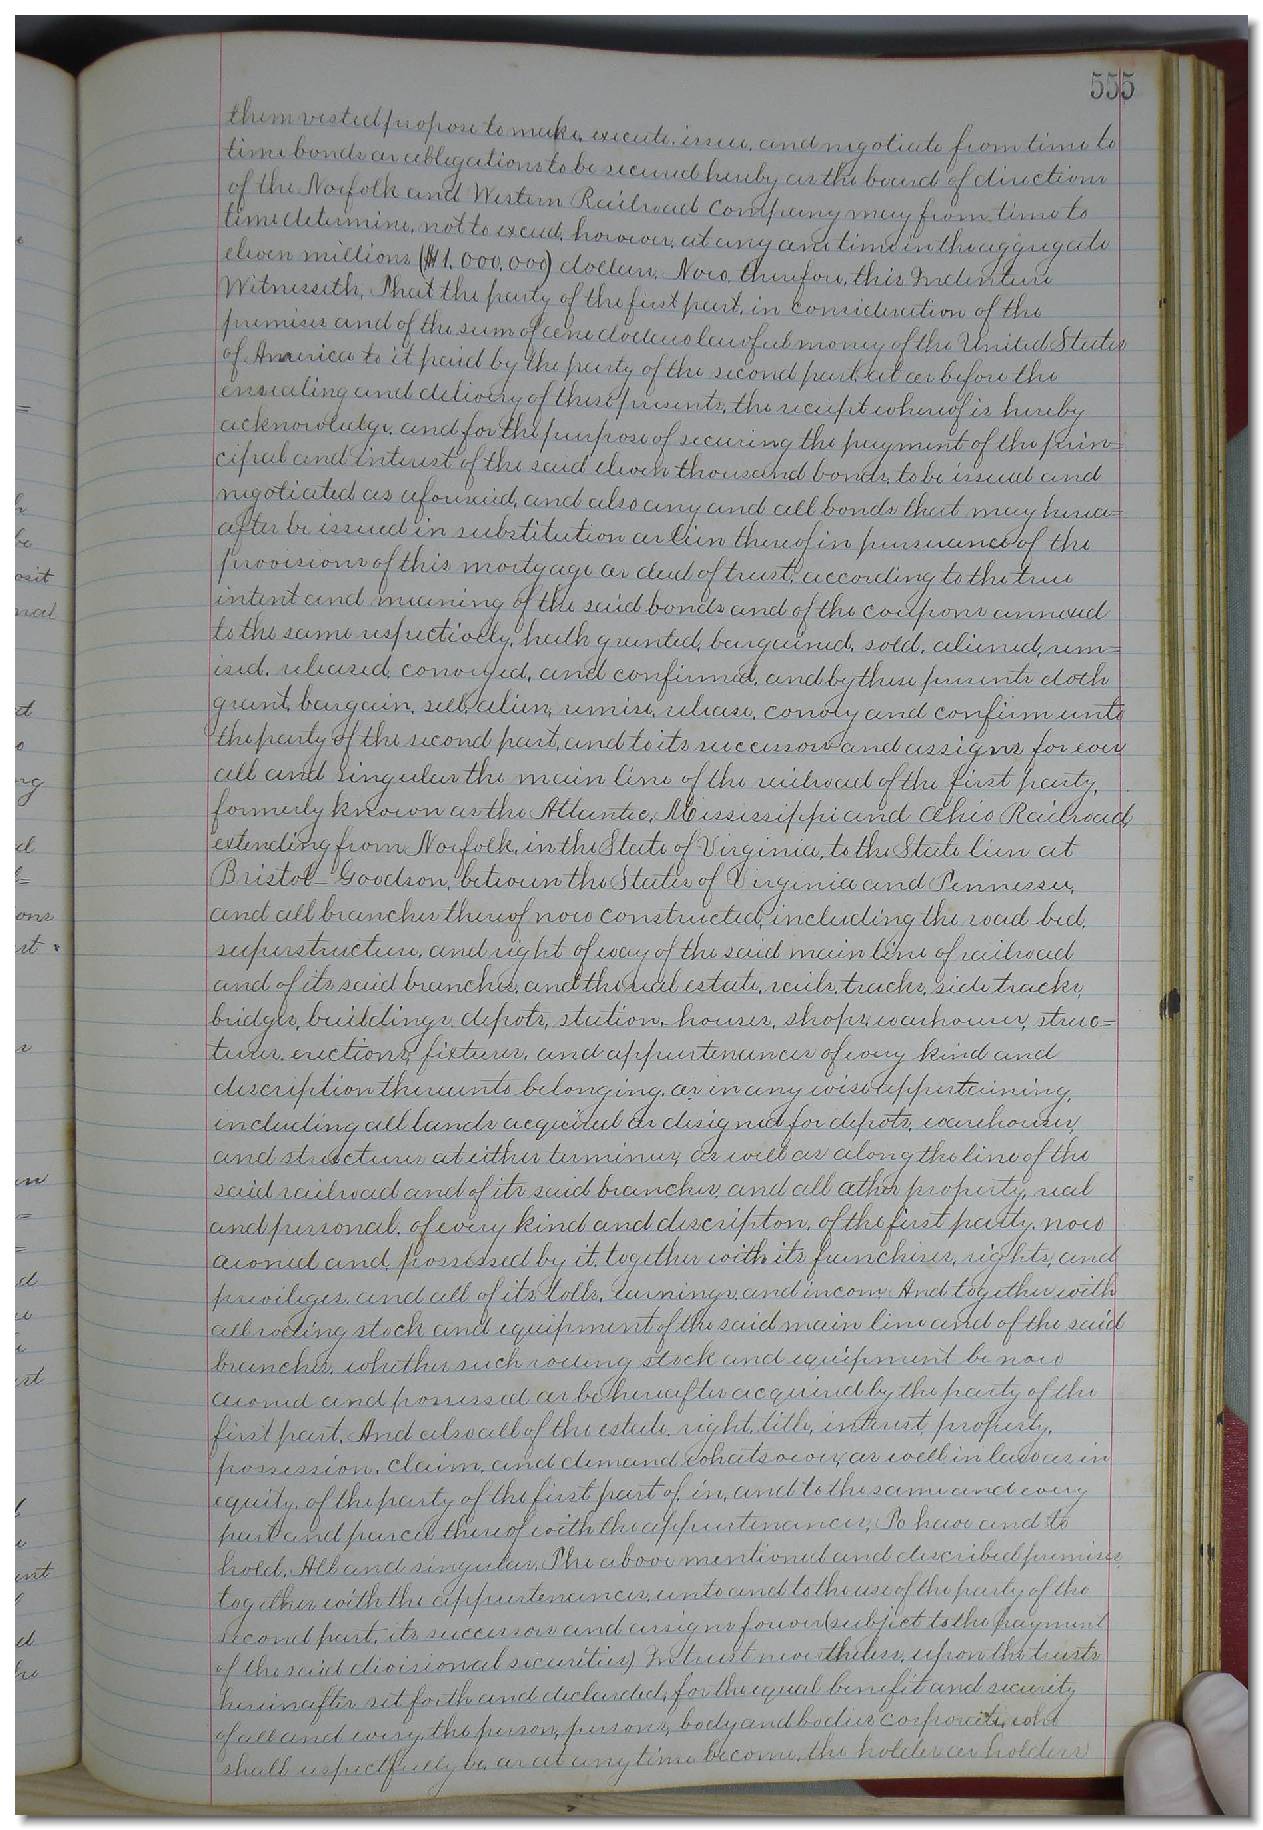 555
them vested propose to make, execute, issue, and negotiate from time to
time bonds or obligations to be secured hereby as the board of directions
of the Norfolk and Western Railroad Company may from time to
time determine, not to exceed, however, at any one time in the aggregate
eleven millions ($11.000.000) dollars. Now, therefore, this Indenture
Witnesseth, That the party of the first part, in consideration of the
premises and of the sum of one dollars lawful money of the United States
of America to it paid by the party of the second part, at or before the
ensealing and delivery of these presents, the receipt whereof is hereby
acknowledge, and for the purpose of securing the payment of the prin=
cipal and interest of the said eleven thousand bonds, to be issued and
negotiated as aforesaid, and also any and all bonds that may herea=
after be issued in substitution or lien thereof in pursuance of the
provisions of this mortgage or deed of trust, according to the true
intent and meaning of the said bonds and of the coupons annexed
to the same respectively, hath granted, bargained, sold, aliened, rem=
ised, released, conveyed, and confirmed, and by these presents doth
grant, bargain, sell, alien, remise, release, convey and confirm unto
the party of the second part, and to its successors and assigns, for ever
all and singular the main line of the railroad of the first party,
formerly known as the Atlantic, Mississippi and Ohio Railroad,
extending from Norfolk, in the State of Virginia, to the State lien at
Bristol-Goodson, between the States of Virginia and Tennessee,
and all branches thereof now constructed, including the road bed,
superstructure, and right of way of the said main line of railroad
and of its said branches, and the real estate, rails, tracks, side tracks,
bridges, buildings, depots, station, houses, shops, warehouses, struc=
tures, erections, fixtures, and appurtenances of every kind and
description thereunto belonging, or in any wise appertaining,
including all lands acquired or designed for depots, warehouses,
and structures at either terminus, as well as along the line of the
said railroad and of its said branches, and all other property, real
and personal, of every kind and descripton, of the first party, now
owned and possessed by it, together with its franchises, rights, and
privileges, and all of its tolls, earnings, and incom. And together with
all rolling stock and equipment of the said main line and of the said
branches, whether such rolling stock and equipment be now
owned and possessed or be hereafter acquired by the party of the
first part. And also all of the estate, right, title, interest, property,
possession, claim, and demand whatsoever, as well in law as in
equity, of the party of the first part of, in, and to the same and every
part and parcel thereof with the appurtenances, To have and to
hold, All and singular, The above mentioned and described premises,
together with the appurtenances, unto and to the use of the party of the
second part, its successors and assigns forever (subject to the payment
of the said divisional securities) In trust nevertheless, upon the trusts
hereinafter set forth and declarded, for the equal benefit and security
of all and every, the person, persons, body and bodies corporate, who
shall respectfully be, or at any time become, the holder or holders